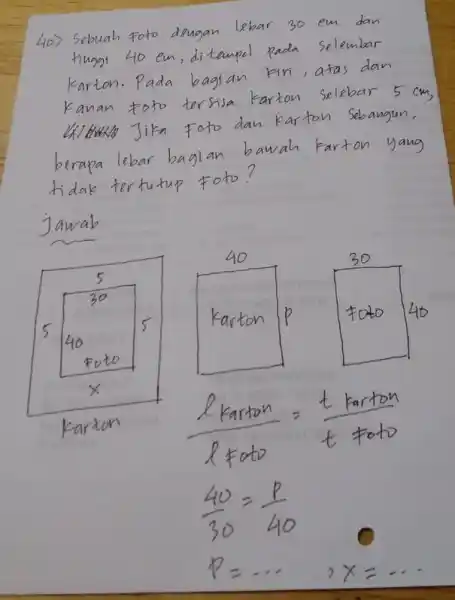 40) Sebuah Foto dengan lebar 30 cm dan
tinggi 40 cm, ditempel pada selembar
karton. Pada bagian kiri, atas dan
kanan Foto tersisa karton selebar 5 cm,
Jika Foto dan karton sebangun,
berapa lebar bagian bawah karton yang
tidak tertutup Foto?
Jawab
5
30
5
5
40
Foto
x
Karton
40
Karton
p
30
Foto
40
l karton / l Foto = t karton / t Foto
40/30 = p/40
P = ... , x = ...